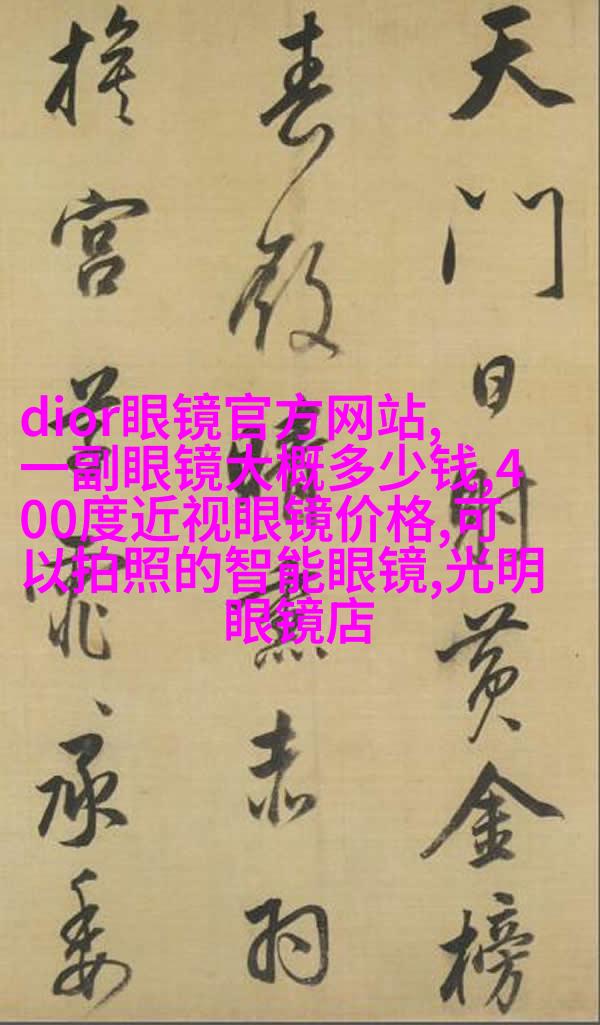 天門日射黄金榜
春殿晴熏赤羽
旗宮草霏〻承委
dior眼镜官方网站,
一副眼镜大概多少钱,4
00度近视眼镜价格,可
以拍照的智能眼镜,光明
眼镜店